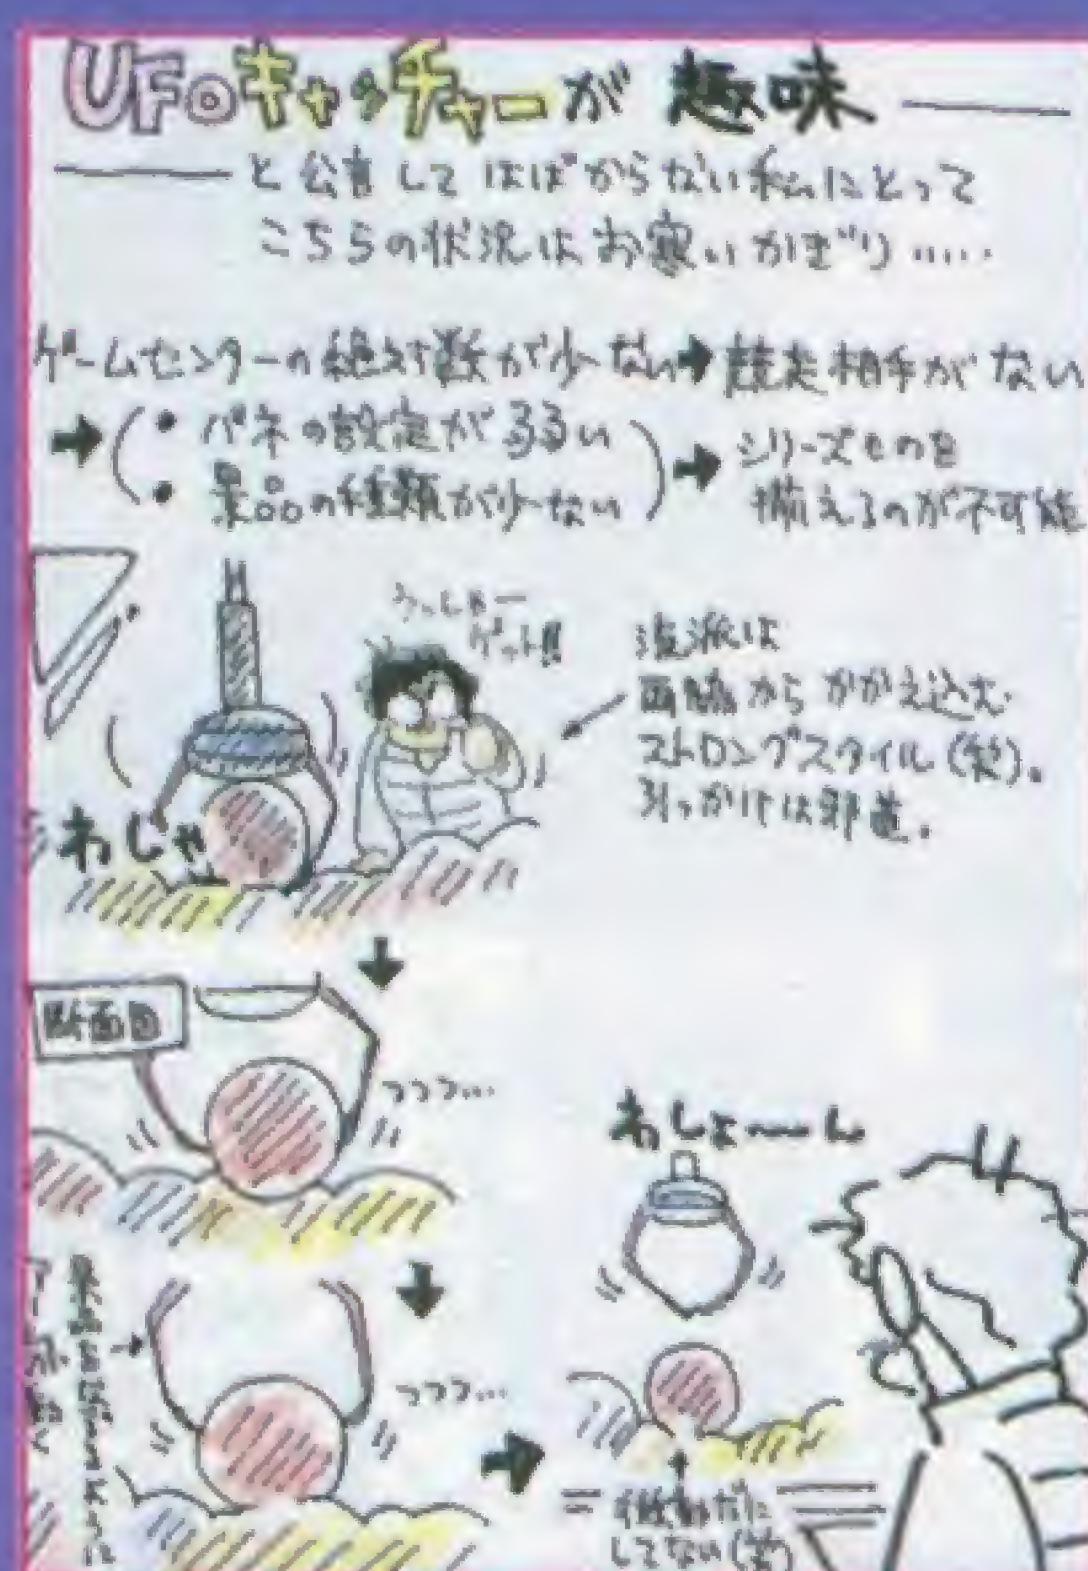 UFOキャッチャーが趣味――
――と公言してはばからない私にとって
こちらの状況はお寒いかぎり……
ゲームセンターの絶対数が少ない➔競走相手がない
➔(・バネの設定がゆるい
・景品の種類が少ない)
➔シリーズものを
揃えるのが不可能
うっしゃー
ゲット!!
流派は
両脇からかかえ込む
ストロングスタイル(笑)。
引っかけは邪道。
わしゃ
断面図
つつつ…
つつつ…
わしょ〜〜ん
微動だに
してない(笑)